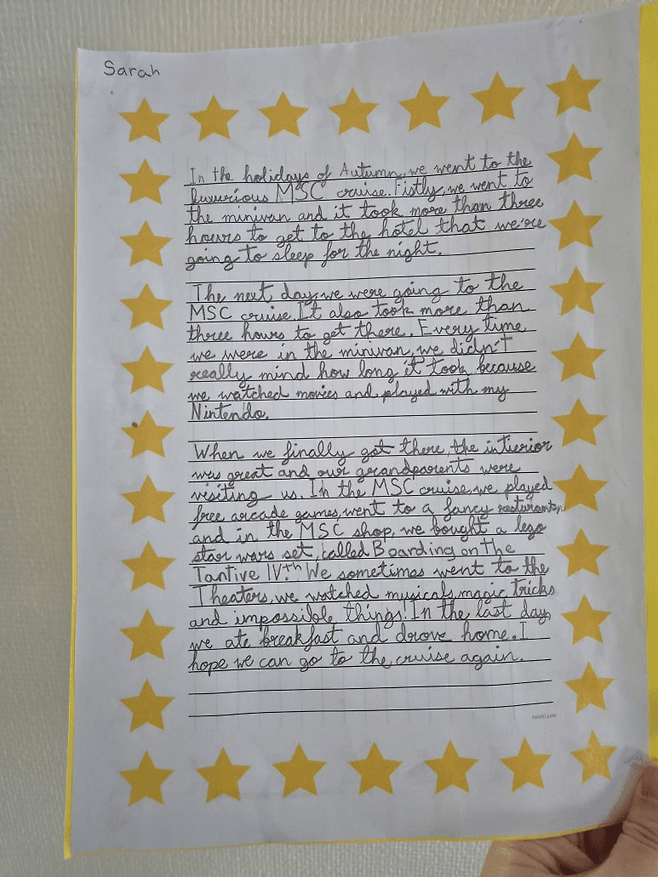 Sarah
In the holidays of Autumn, we went to the
luxurious MSC cruise. Fistly, we went to
the minivan and it took more than three
hours to get to the hotel that we're
going to sleep for the night.
The next day, we were going to the
MSC cruise. It also took more than
three hours to get there. Every time
we were in the minivan, we didn't
really mind how long it took because
we watched movies and played with my
Nintendo.
When we finally got there, the intierior
was great and our grandparents were
visiting us. In the MSC cruise, we played
free arcade games, went to a fancy
and in the MSC shop, we bought a lego
star wars set, called Boarding on the
Tantive IV.th We sometimes went to the
Theaters, we watched musicals, magic tricks
and impossible things! In the last day,
we ate breakfast and drove home. I
hope we can go to the cruise again.